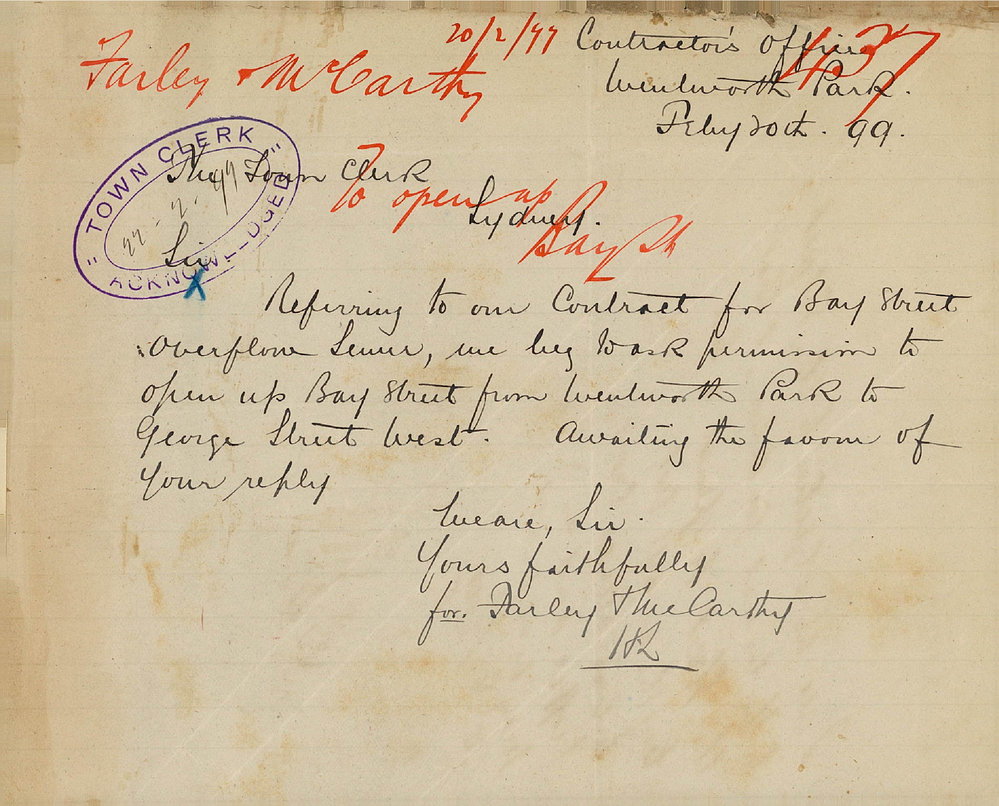 20/2/99
Farley & McCarthy
437
Contractor's Office
Wentworth Park.
Feby 20th. 99.
TOWN CLERK
22-2-99
ACKNOWLEDGED
The Town Clerk
To open up
Bay St
Sydney.
Sir
X
Referring to our Contract for Bay Street
Overflow Sewer, we beg to ask permission to
open up Bay Street from Wentworth Park to
George Street West. Awaiting the favour of
your reply
We are, Sir.
Yours faithfully
for. Farley & McCarthy